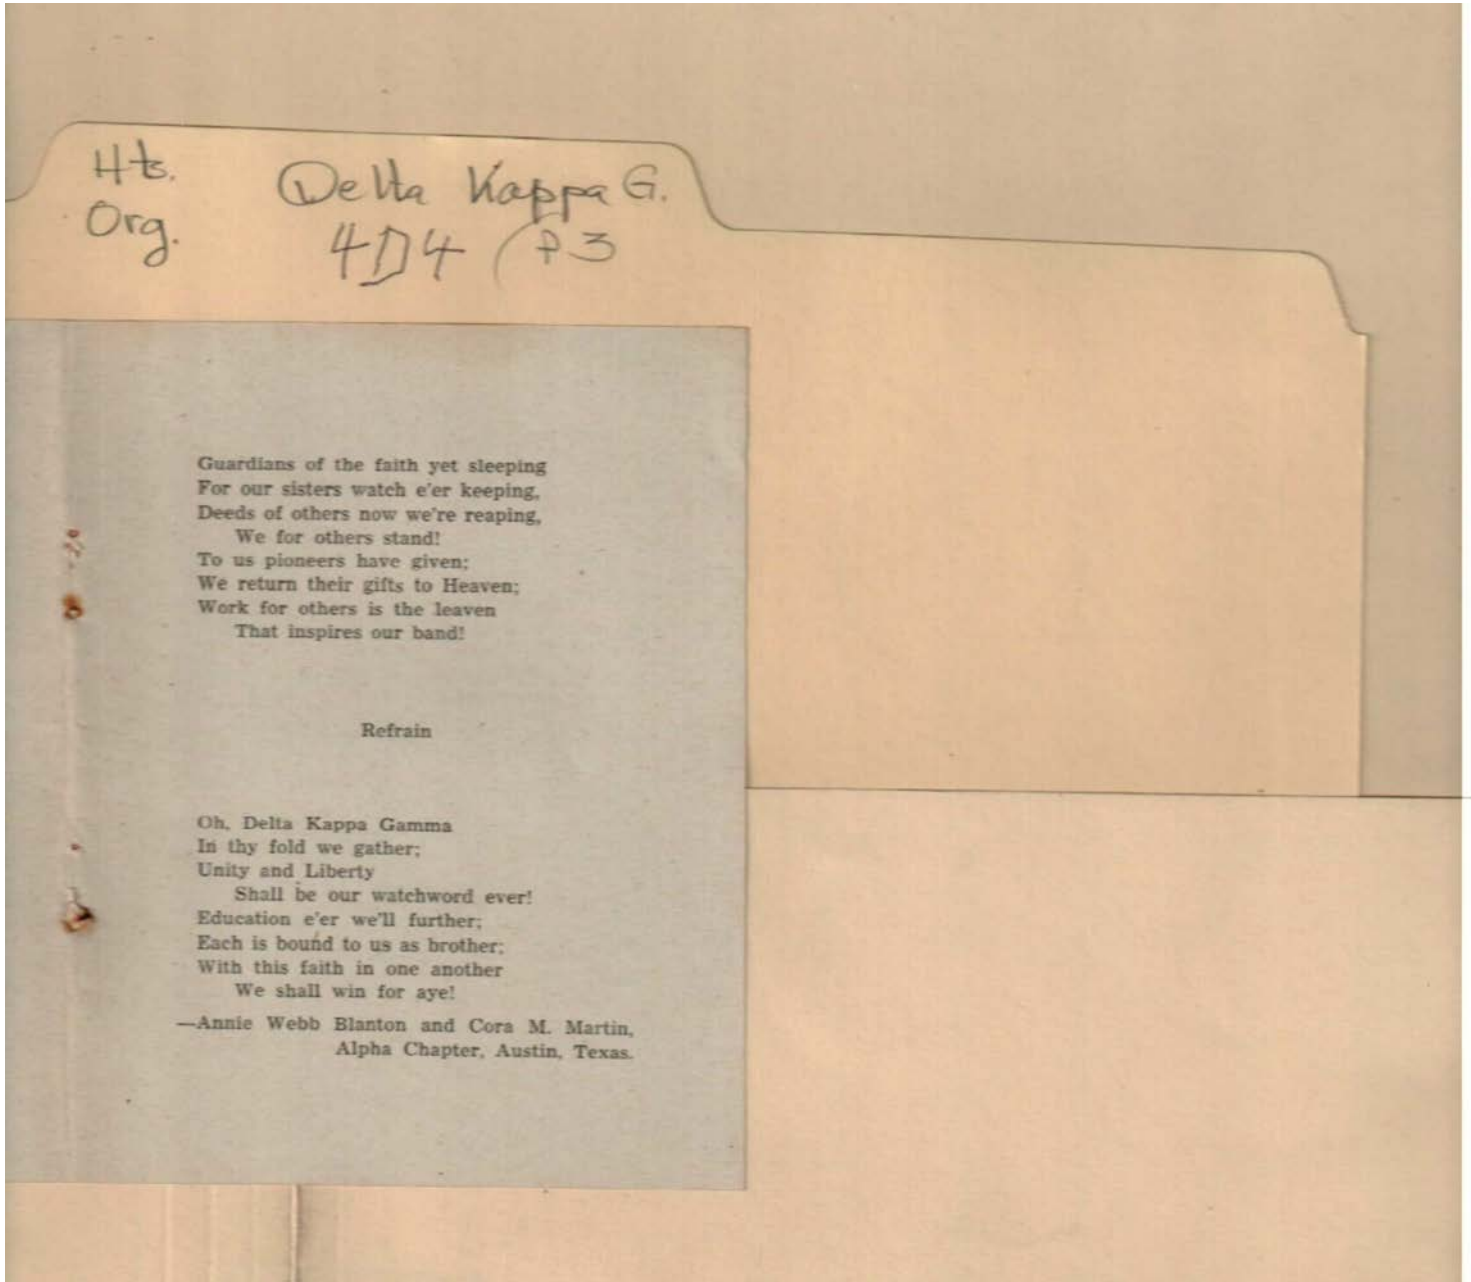 Hts. Delta Kappa G.
Org. 4D4 (P3
Guardians of the faith yet sleeping
For our sisters watch e'er keeping,
Deeds of others now we're reaping,
We for others stand!
To us pioneers have given;
We return their gifts to Heaven;
Work for others is the leaven
That inspires our band!
Refrain
Oh, Delta Kappa Gamma
In thy fold we gather;
Unity and Liberty
Shall be our watchword ever!
Education e'er we'll further;
Each is bound to us as brother;
With this faith in one another
We shall win for aye!
—Annie Webb Blanton and Cora M. Martin,
Alpha Chapter, Austin, Texas.